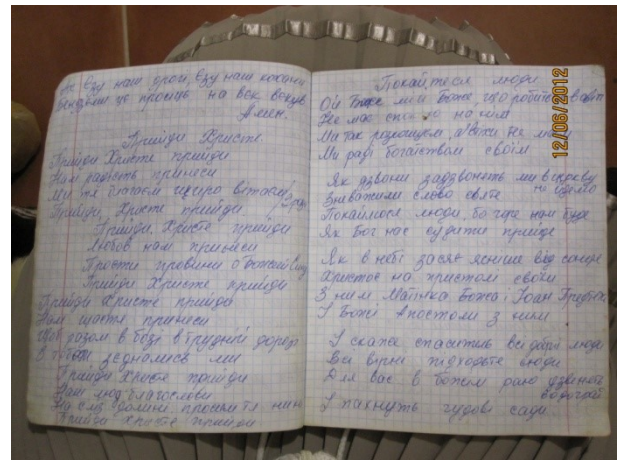 наш дроги, Єзу наш кохани
це просиць на вєк векув
Амен.
Прийди Христе.
Прийди Христе прийди
Нам радість принеси
Ми тя благаєм щиро вітаєм
Прийди Христе прийди.
Прийди, Христе прийди
Любов нам принеси
Прости провини о Божий
Прийди Христе прийди
Прийди Христе прийди
Нам щастя принеси
Щоб разом в бозі в трудній дорозі
В зєднались ми
Прийди Христе прийди
Наш люд благослови
На сліз долині просим тя нині
Прийди Христе прийди
Покайтеся люди
Ой Боже мій Боже, що робиться в світі
Не має на нім
Ми так не
Ми раді богатствам своїм
Як дзвони задзвонять ми в церкву
не йдемо
Зневажили слово святе
Покаймося люди, бо горе нам буде
Як Бог нас судити прийде
Як в небі засяє ясніше від сонця
Христос на престолі своїм
З ним Матінка Божа і Іоан
І Божі Апостоли з ним
І скаже спаситель всі добрі люди
Всі вірні підходьте сюди
Для вас в божом раю дзвенять
водограї
І пахнуть чудові сади.
12/06/2012